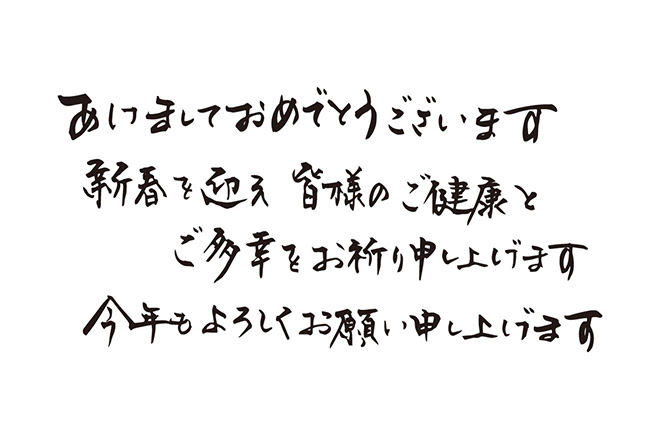 あけましておめでとうございます
新春を迎え 皆様のご健康と
ご多幸をお祈り申し上げます
今年もよろしくお願い申し上げます